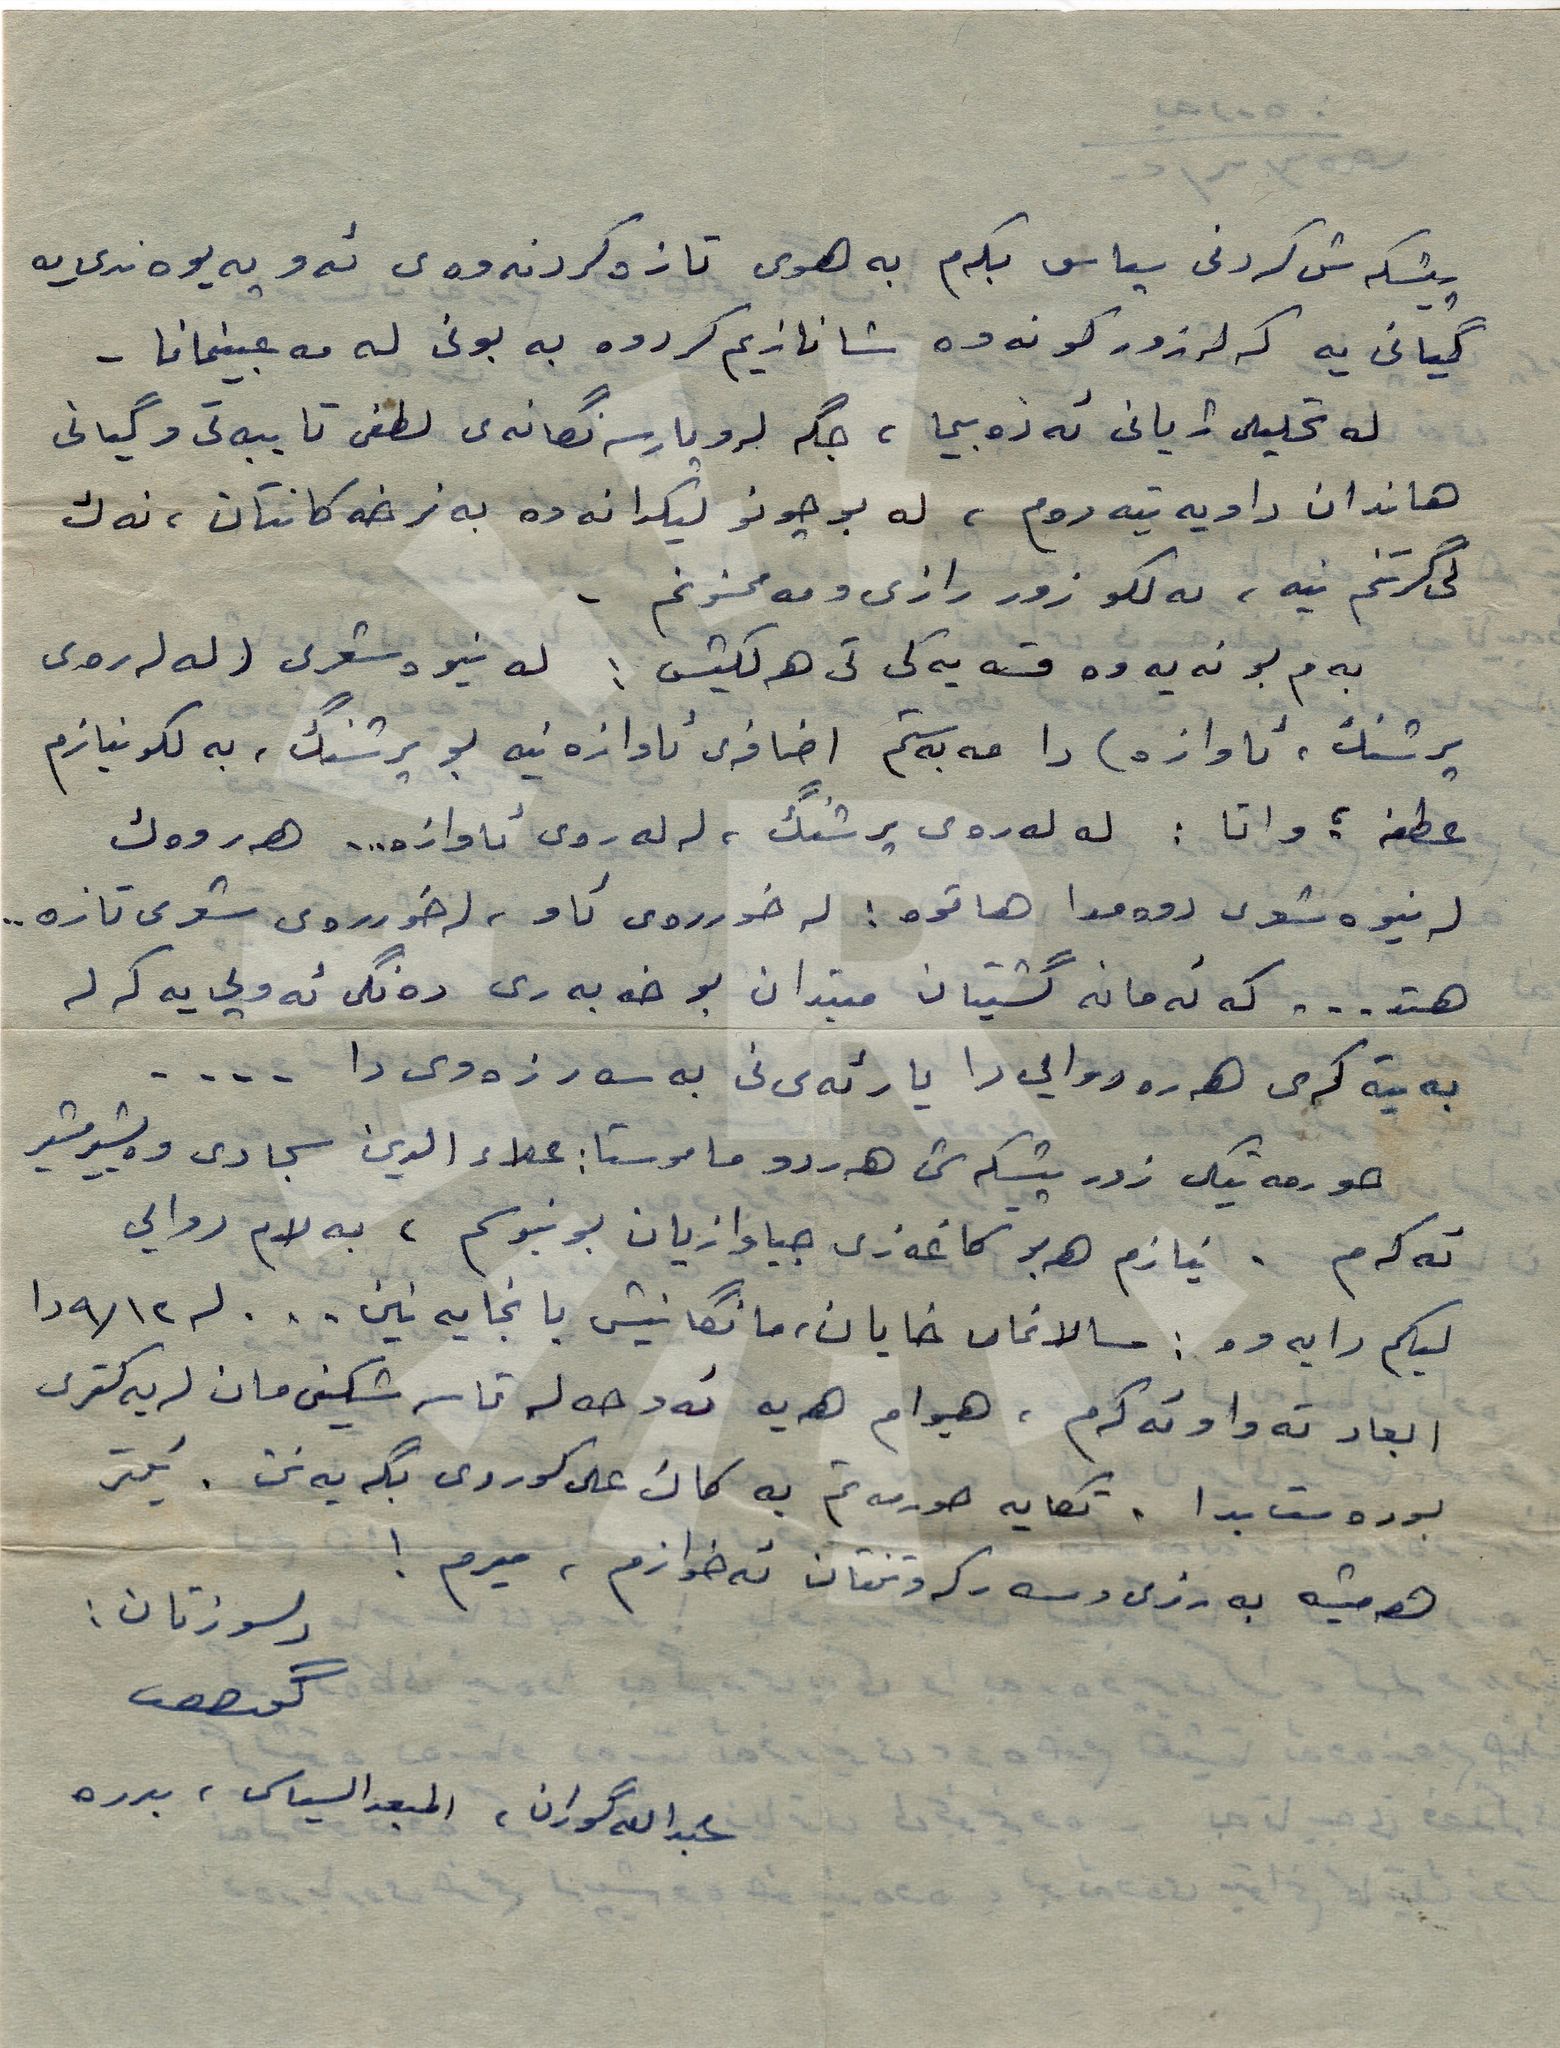 پیشکەش کردنی سپاس بکەم بە هوی تازە کردنەوەی ئەو پەیوەندی یە
گیانی یە کە لە زور کونەوە شانازیم کردوە بە بونی لە مە بینمانا -
لە تحلیلی ژیانی ئەدەبیما ، جگە لەو پارسەنگانەی لطفی تایبەتی و گیانی
هاندان داویە تیە دوم ، لە بو چونو لیکدانەوە بە نرخە کانتان ، نەك
لی گرتنم نیە ، بەلکو زور رازی و مەمنونم -
بەم بونەیەوە قسە یەکی تی هەلکیش : لە نیوە شعری (لە لەرەی
پرشنگ ، ئاوازە) دا مەبەستم اضافەی ئاوازە نیە بو پرشنگ ، بەلکو نیازم
عطفە ؛ واتا : لە لەرەی پرشنگ ، لە لەرەی ئاوازە... هەروەك
لە نیوە شعری دوەمدا هاتوە : لە خوررەی ئاو ، لە خوررەی شعری تازە ..
هتد ... کە ئەمانە گشتیان مبتدان بو خەبەری دەنگی ئەو پی یە کە لە
بەیتەکەی هەرە دوایی دا یار ئەی نی بە سەر زەوی دا ....
حورمەتیکی زور پیشکەش هەردو ماموستا : علاء الدین سجادی و شیر مشیر
ئەکەم . نیازم هەبو کاغەزی جیاوازیان بو نیوسم ، بەلام دوایی
لیکم دایەوە : سالانمان خایان ، مانگانیش پا نجایە نین ... لە ٩/١٢ دا
ابعاد تەواو ئەکەم ، هیوام هەیە ئەوحەلە تاسە شکینی مان لە یەکتری
بو دەست بدا . تکایە حورمەتم بە کاك علی کوردی بگەیەنن . ئیتر
هەمیشە بەرزی و سەرکەوتنتان ئەخوازم ، میرم !
دلسوزتان :
گوران
عبدالله گوران ، المبعد السیاسی ، بدرە